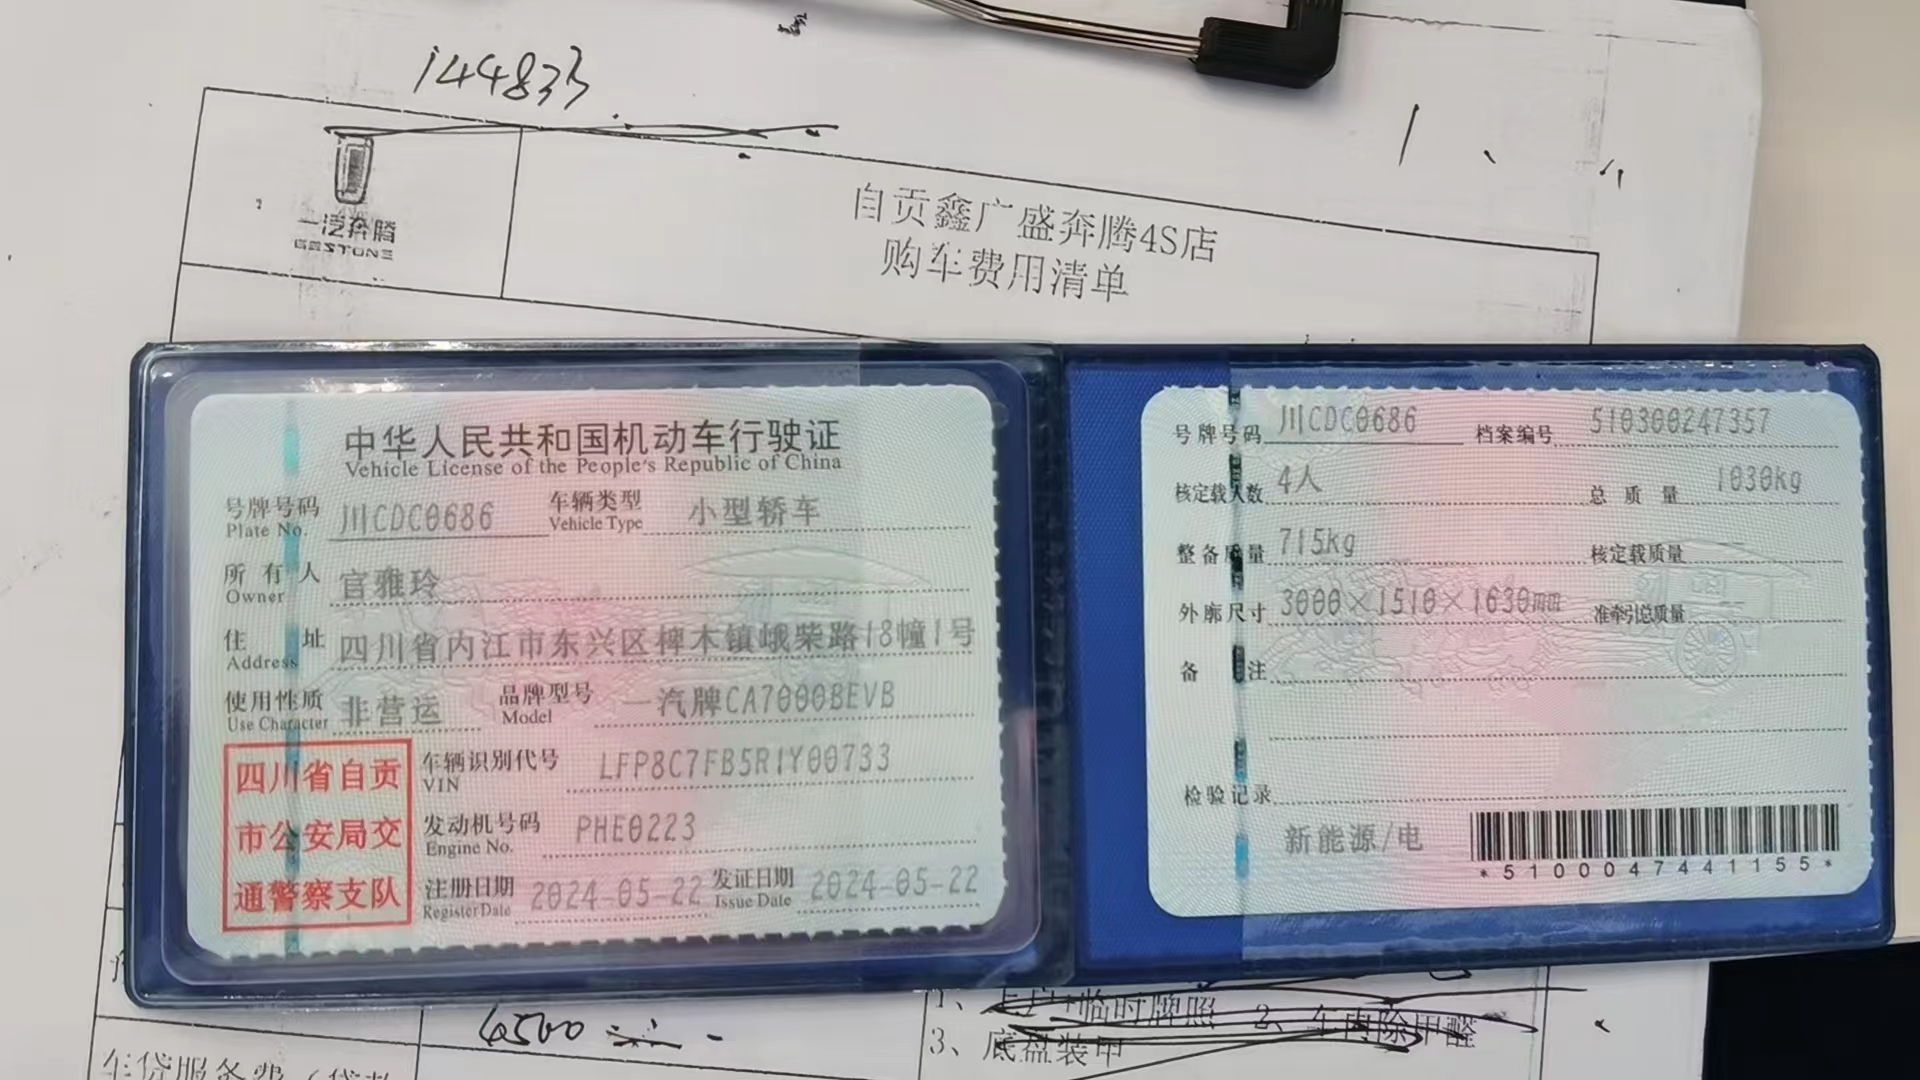 144833
一汽奔腾
BESTUNE
自贡鑫广盛奔腾4S店
购车费用清单
中华人民共和国机动车行驶证
Vehicle License of the People's Republic of China
号牌号码 川CDC0686 车辆类型 小型轿车
Plate No. Vehicle Type
所有人 官雅玲
Owner
住址 四川省内江市东兴区椑木镇峨柴路18幢1号
Address
使用性质 非营运 品牌型号 一汽牌CA7000BEVB
Use Character Model
四川省自贡
市公安局交
通警察支队
车辆识别代号 LFP8C7FB5R1Y00733
VIN
发动机号码 PHE0223
Engine No.
注册日期 2024-05-22 发证日期 2024-05-22
Register Date Issue Date
号牌号码 川CDC0686 档案编号 510300247357
核定载人数 4人 总质量 1030kg
整备质量 715kg 核定载质量 --
外廓尺寸 3000×1510×1630mm 准牵引总质量 --
备注
检验记录
新能源/电
*5100047441155*
4500
1、上户+临时牌照 2、车内除甲醛
3、底盘装甲
车贷服务费(贷款